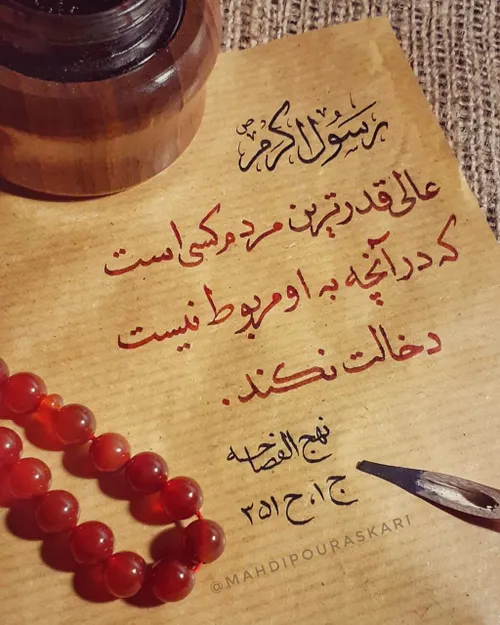 رسول اکرم ص
عالی قدرترین مردم کسی است
که در آنچه به او مربوط نیست
دخالت نکند.
نهج الفصاحه
ج۱، ح۳۵۱
@MAHDIPOURASKARI